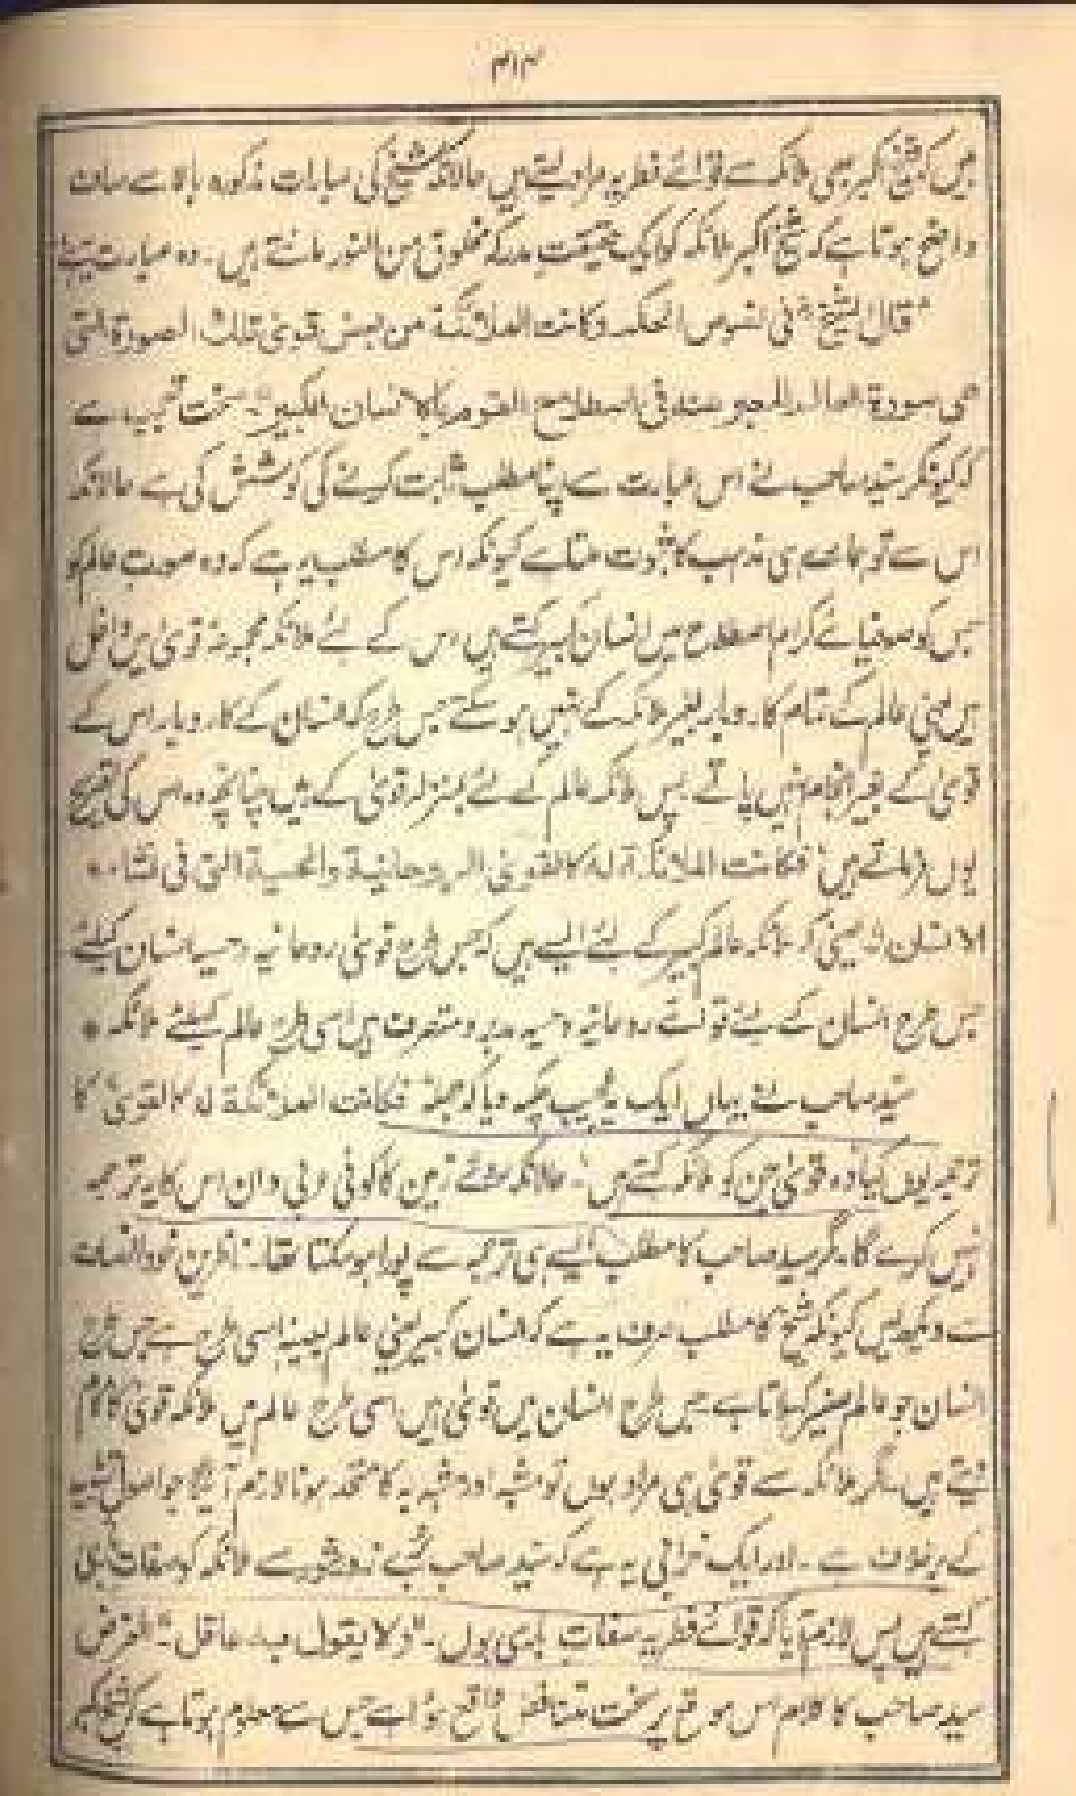 ۳۱۴
ہیں کہ شیخ اکبر بھی ملائکہ سے قوائے فطریہ مراد لیتے ہیں حالانکہ شیخ کی عبارات مذکورہ بالا سے صاف
واضح ہوتا ہے کہ شیخ اکبر ملائکہ کو ایک حقیقت مدرکہ مخلوق من النور مانتے ہیں۔ وہ عبارت یہ ہے
"قال الشیخ فی فصوص الحکم وکانت الملائکۃ من بعض قوی تلک الصورۃ التی
ھی صورۃ العالم المعبر عنہ فی اصطلاح القوم بالانسان الکبیر"۔ سخت تعجب ہے
کہ کیونکر سید صاحب نے اس عبارت سے اپنا مطلب ثابت کرنے کی کوشش کی ہے حالانکہ
اس سے تو ہمارے ہی مذہب کا ثبوت ملتا ہے کیونکہ اس کا مطلب یہ ہے کہ وہ صورت عالم کو
جس کو صوفیائے کرام اصطلاح میں انسان کبیر کہتے ہیں اس کے لئے ملائکہ مجموعہ قویٰ میں داخل
ہیں یعنی عالم کے تمام کاروبار بغیر ملائکہ کے نہیں ہو سکتے جس طرح کہ انسان کے کاروبار اس کے
قویٰ کے بغیر انجام نہیں پاتے پس ملائکہ عالم کے لئے بمنزلہ قویٰ کے ہیں چنانچہ وہ اس کی تصریح
یوں فرماتے ہیں "فکانت الملائکۃ لہ کالقوی الروحانیۃ والحسیۃ التی فی نشاۃ
الانسان" یعنی کہ ملائکہ عالم کبیر کے لئے ایسے ہیں کہ جس طرح قویٰ روحانیہ وحسیہ انسان کیلئے
جس طرح انسان کے لئے قوائے روحانیہ وحسیہ مدبر ومتصرف ہیں اسی طرح عالم کیلئے ملائکہ *
سید صاحب نے یہاں ایک عجیب چکمہ دیا کہ جملہ فکانت الملائکۃ لہ کالقوی کا
ترجمہ یوں کیا "وہ قویٰ جن کو ملائکہ کہتے ہیں"۔ حالانکہ روئے زمین کا کوئی عربی دان اس کا یہ ترجمہ
نہیں کرے گا۔ مگر سید صاحب کا مطلب ایسے ہی ترجمہ سے پورا ہو سکتا تھا۔ ناظرین خود انصاف
سے دیکھ لیں کیونکہ شیخ کا مطلب صرف یہ ہے کہ انسان کبیر یعنی عالم بعینہ اسی طرح ہے جس طرح
انسان جو عالم صغیر کہلاتا ہے جس طرح انسان میں قویٰ ہیں اسی طرح عالم میں ملائکہ قویٰ کا کام
دیتے ہیں۔ اگر ملائکہ سے قویٰ ہی مراد ہوں تو مشبہ اور مشبہ بہ کا متحد ہونا لازم آئیگا جو اصول تشبیہ
کے برخلاف ہے۔ اور ایک خرابی یہ ہے کہ سید صاحب بڑے زور شور سے ملائکہ کو صفات باری
کہتے ہیں پس لازم آیا کہ قوائے فطریہ صفات باری ہوں۔ "ولا یقول بہ عاقل"۔ الغرض
سید صاحب کا کلام اس موقع پر سخت متناقض واقع ہوا ہے جس سے معلوم ہوتا ہے کہ شیخ اکبر